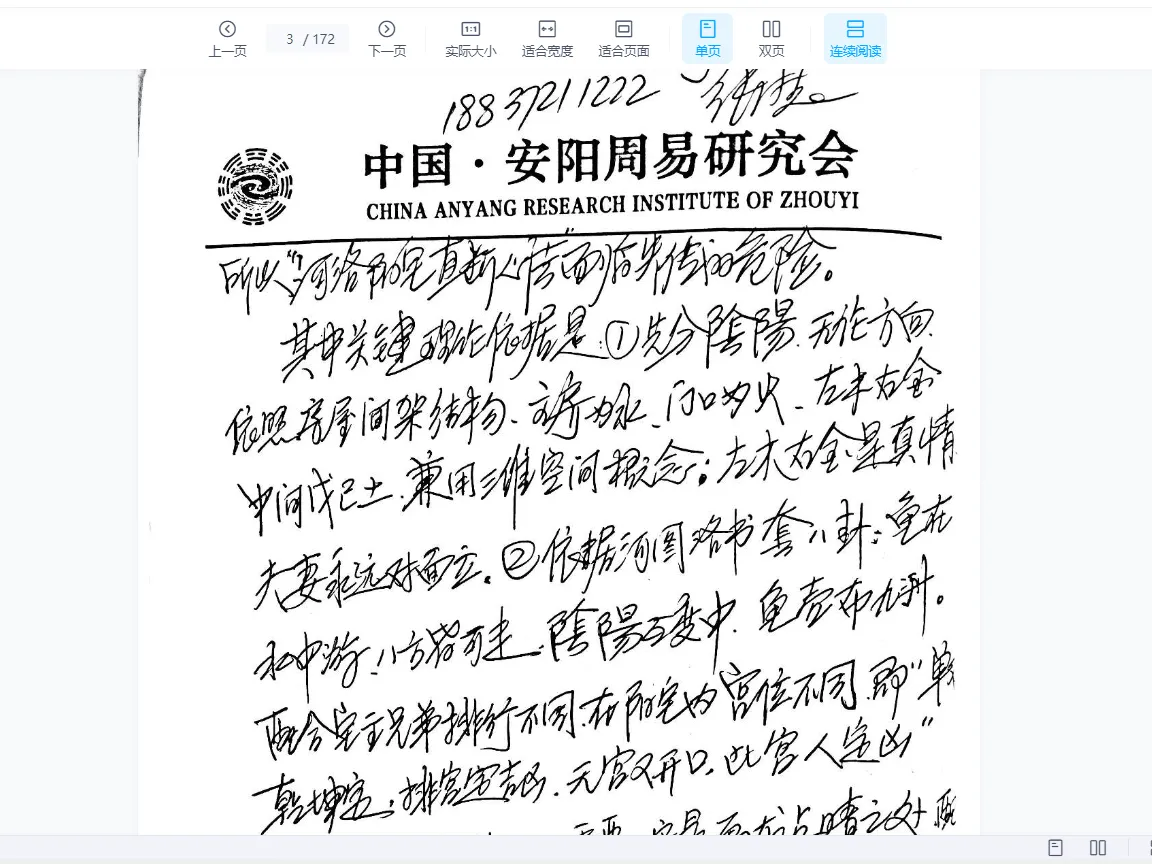 上一页 3 / 172 下一页 实际大小 适合宽度 适合页面 单页 双页 连续阅读
18837211222
中国·安阳周易研究会
CHINA ANYANG RESEARCH INSTITUTE OF ZHOUYI
所以"河洛阴宅直断入情"面临失传的危险。
其中关键理论依据是:①先分陰陽、无论方向
依照房屋间架结构、主房为水、门口为火、左木右金
中间戊己土、兼用三维空间概念;左木右金是真情
夫妻永远对面立。②依据河图洛书套八卦:龟在
水中游、八方皆可走、陰陽万变中、龟壳布九州。
配合宅主兄弟排行不同、在阳宅内宫位不同、即"单
乾坤宅、排宫定吉凶、无宫又开口、此宫人定凶"